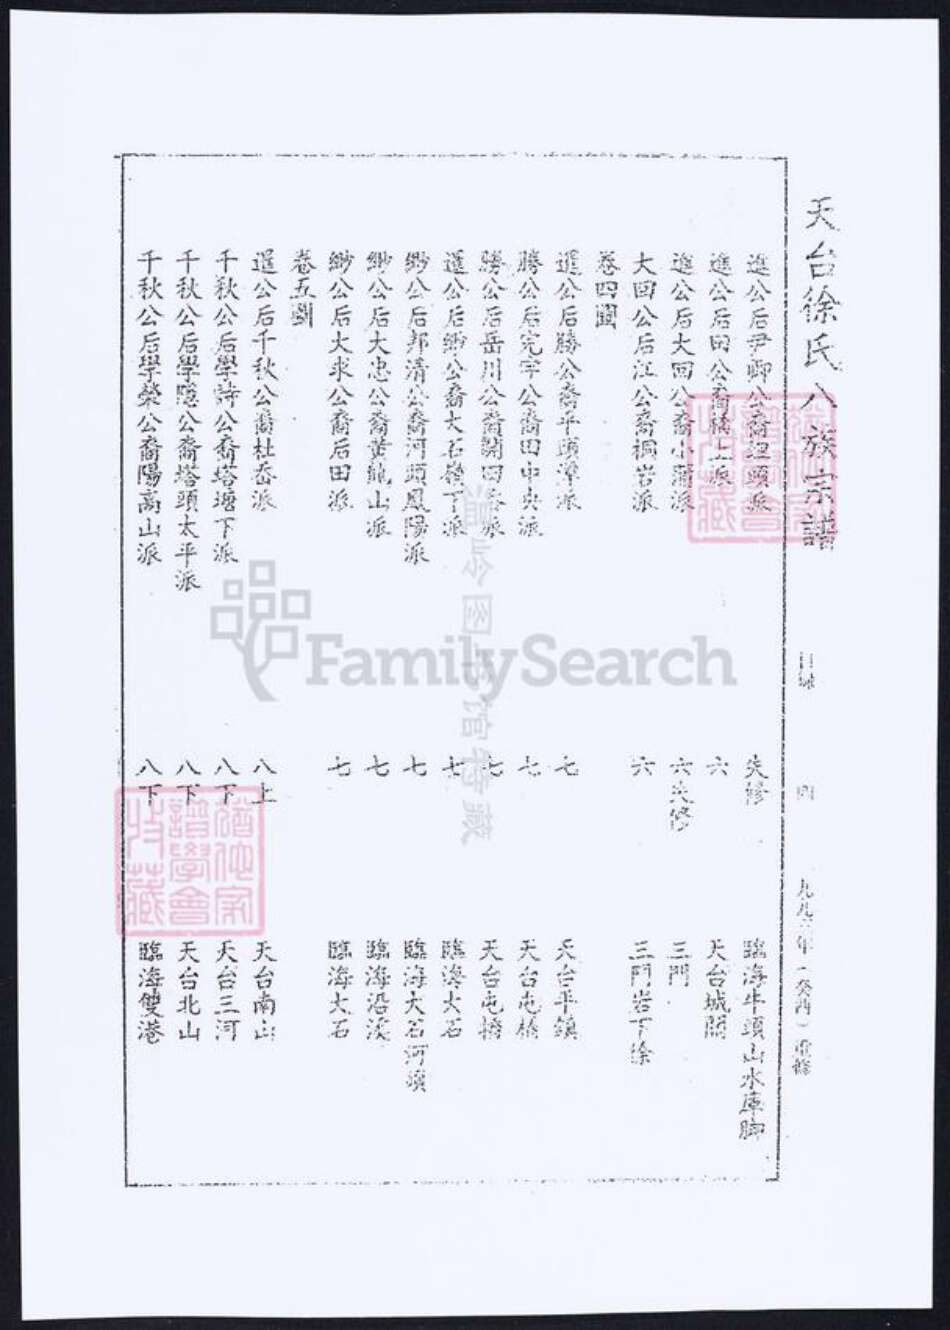 天台徐氏八族宗譜
目錄
四
九九三年（癸酉）重修
進公后尹卿公裔裡頭派 失修 臨海牛頭山水庫腳
進公后田公裔橋上派 六 天台城關
進公后大回公裔小蒲派 六失修 三門
大回公后江公裔桐岩派 六 三門岩下徐
卷四圖
暹公后勝公裔平頭潭派 七 天台平鎮
勝公后完宇公裔田中央派 七 天台屯橋
勝公后岳川公裔派 七 天台屯橋
暹公后緲公裔大石嶺下派 七 臨海大石
緲公后邦清公裔河頭鳳陽派 七 臨海大石河頭
緲公后大忠公裔黃龍山派 七 臨海沿溪
緲公后大求公裔后田派 七 臨海大石
卷五圖
暹公后千秋公裔杜岙派 八上 天台南山
千秋公后學詩公裔塔塘下派 八下 天台三河
千秋公后學隱公裔塔頭太平派 八下 天台北山
千秋公后學榮公裔陽高山派 八下 臨海雙港
FamilySearch
溫岭图书馆特藏
譜學會
收藏